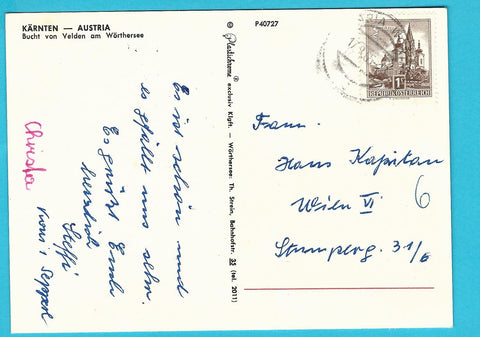 KÄRNTEN — AUSTRIA
Bucht von Velden am Wörthersee
P40727
Es ist schön und
es gfällt uns sehr.
Es grüßt Euch
herzlich
Steffi
Christa
© Plastichrome ® exclusiv Klgft. — Wörthersee: Th. Strein, Bahnhofstr. 35 (tel. 2011)
REPUBLIK ÖSTERREICH
Fam.
Hans Kapitan
Wien VI
6
Stumperg. 31/6